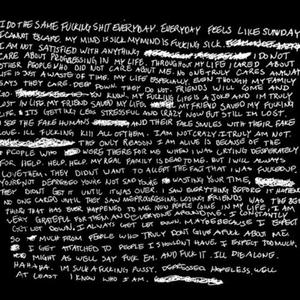 I DO THE SAME FUCKING SHIT EVERYDAY. EVERYDAY FEELS LIKE SUNDAY
I CANNOT ESCAPE. MY MIND IS SICK. MY MIND IS FUCKING SICK.
I AM NOT SATISFIED WITH ANYTHING I DON'T
CARE ABOUT PROGRESSING IN MY LIFE. THROUGHOUT MY LIFE I CARED ABOUT
OTHER PEOPLE WHO DID NOT CARE ABOUT ME. NO ONE TRULY CARES ANYWAY
LIFE IS JUST A WASTE OF TIME. MY LIFE ESPECIALLY. EVEN THOUGH MY FAMILY
SAYS THEY CARE. DEEP DOWN THEY DO NOT. FRIENDS WILL COME AND
GO. YOU KNOW, MY FUCKING LIFE IS A JOKE AND I'M TRULY
LOST IN LIFE MY FRIEND SAVED MY LIFE. MY FRIEND SAVED MY FUCKING
LIFE. ITS GETTING LESS STRESSFUL AND CRAZY NOW BUT STILL IM LOST.
I SEE THE FAKE HUMANS AND THEIR FAKE SMILES WITH THEIR FAKE
LOVE. ILL FUCKING KILL ALL OF THEM. I AM NOT CRAZY. I TRULY AM NOT.
THE ONLY REASON I AM ALIVE IS BECAUSE OF THE
PEOPLE WHO WERE THERE FOR ME WHEN I WAS CRYING DESPERATELY
FOR HELP. HELP. HELP. MY REAL FAMILY IS DEAD TO ME. BUT I WILL ALWAYS
LOVE THEM. THEY DIDN'T WANT TO ACCEPT THE FACT THAT I WAS FUCKING
DIFFERENT. DEPRESSED? YOUR NOT SAD YOURE WASTING YOUR TIME.
THEY DON'T GET IT UNTIL ITS OVER. I SAW EVERYTHING BEFORE IT
NO ONE CARED UNTIL THEY SAW ME PROGRESSING. LOSING FRIENDS WAS THE BEST
THING THAT HAS EVER HAPPENED TO ME. NOW PEOPLE COME IN MY LIFE, I AM
VERY GRATEFUL FOR THEM AND EVERYONE AROUND ME. I CONSTANTLY
GET LET DOWN. I ALWAYS GET LET DOWN. MAYBE BECAUSE I EXPECT
SO MUCH FROM PEOPLE WHO TRULY DON'T GIVE A FUCK ABOUT ME.
I GET ATTACHED TO PEOPLE I SHOULDN'T HAVE. I EXPECT TOO MUCH.
MIGHT AS WELL SAY FUCK EM. AND FUCK IT. ILL DIE ALONE.
HAHAHA. IM SUCH A FUCKING PUSSY. DEPRESSED HOPELESS. WELL
AT LEAST I KNOW WHO I AM.